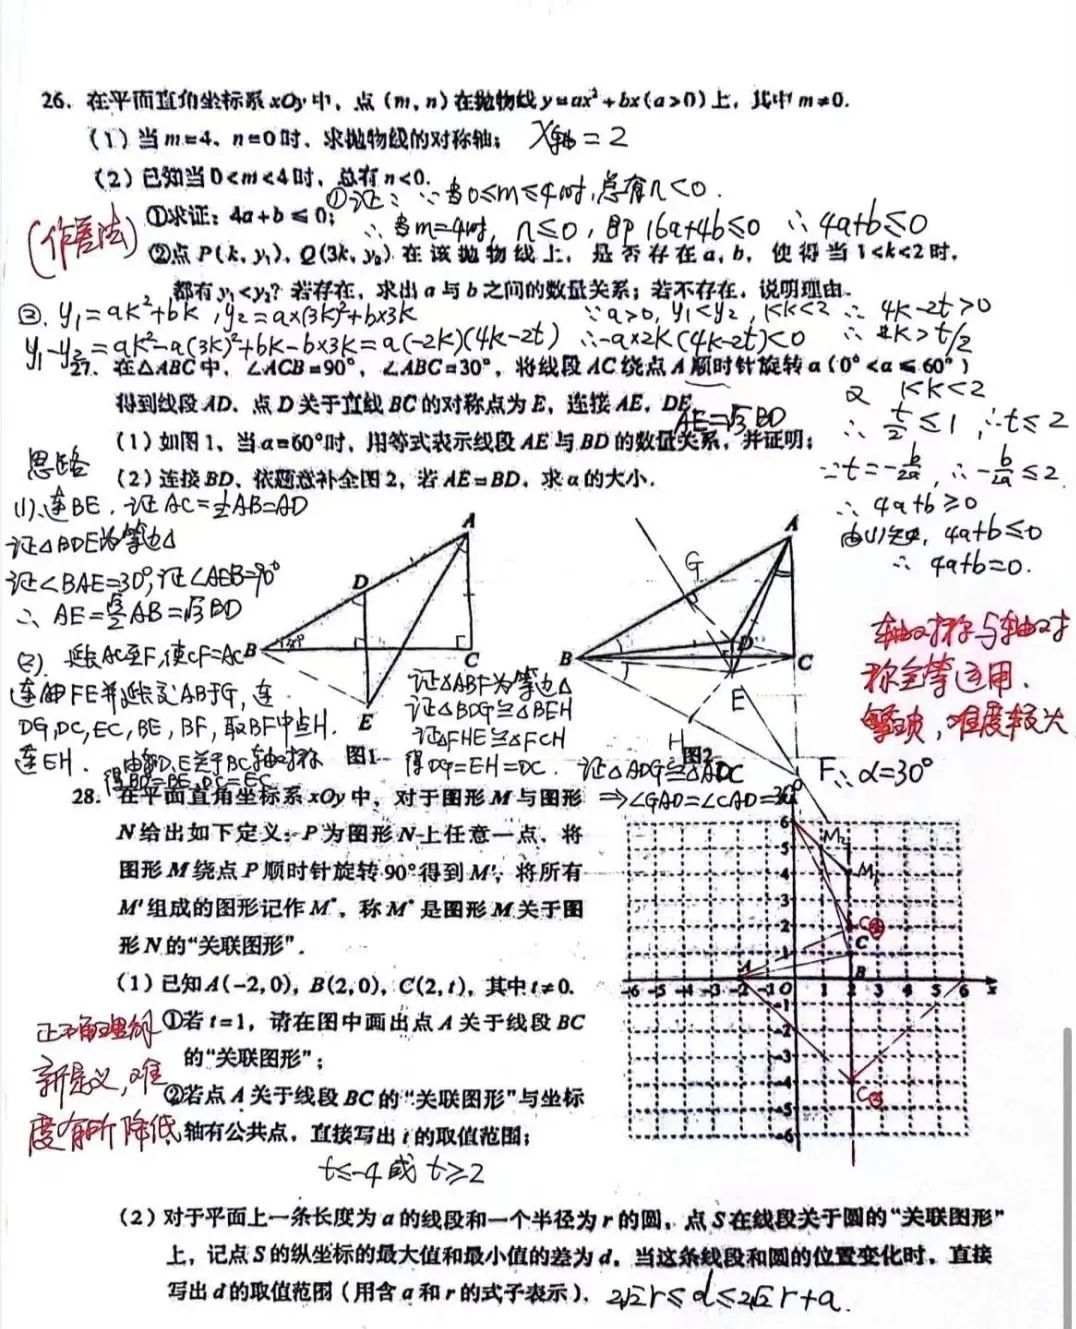 26. 在平面直角坐标系xOy中，点(m, n)在抛物线y=ax²+bx(a>0)上，其中m≠0.
(1) 当m=4，n=0时，求抛物线的对称轴； X轴=2
(2) 已知当0<m<4时，总有n<0.
①证：∵当0≤m≤4时,总有n<0.
①求证：4a+b≤0；
∴当m=4时, n≤0, 即16a+4b≤0 ∴4a+b≤0
②点P(k, y₁)，Q(3k, y₂)在该抛物线上，是否存在a, b，使得当1<k<2时，
都有y₁<y₂？若存在，求出a与b之间的数量关系；若不存在，说明理由.
②. y₁=ak²+bk, y₂=a×(3k)²+b×3k
∵a>0, y₁<y₂, 1<k<2 ∴4k-2t>0
y₁-y₂=ak²-a(3k)²+bk-b×3k=a(-2k)(4k-2t) ∴-a×2k(4k-2t)<0 ∴k>t/2
又 1<k<2
∴ t/2≤1, ∴t≤2
∵t=-b/2a, ∴-b/2a≤2
∴4a+b≥0
由(1)知, 4a+b≤0
∴4a+b=0.
27. 在△ABC中，∠ACB=90°，∠ABC=30°，将线段AC绕点A顺时针旋转α(0°<α≤60°)
得到线段AD. 点D关于直线BC的对称点为E，连接AE, DE.
AE=√3BD
(1) 如图1，当α=60°时，用等式表示线段AE与BD的数量关系，并证明；
(2) 连接BD，依题意补全图2，若AE=BD，求α的大小.
思路
(1).连BE, 证AC=½AB=AD
证△BDE为等边△
证∠BAE=30°, 证∠AEB=90°
∴AE=√3/2AB=√3BD
(2). 延长AC至F,使CF=AC
连FE并延长交AB于G, 连
DG,DC,EC,BE,BF,取BF中点H.
连EH. 由D,E关于BC轴对称
得BD=BE, DC=EC
证△ABF为等边△
证△BDG≌△BEH
证△FHE≌△FCH
得DG=EH=DC. 证△ADG≌△ADC
⇒∠GAD=∠CAD=30°
∴α=30°
A
D
B
C
E
图1
A
G
D
B
C
E
H
图2
F
轴对称与轴对
称全等运用.
繁琐,难度较大
28. 在平面直角坐标系xOy中，对于图形M与图形
N给出如下定义：P为图形N上任意一点，将
图形M绕点P顺时针旋转90°得到M'，将所有
M'组成的图形记作M*，称M*是图形M关于图
形N的“关联图形”.
(1) 已知A(-2, 0)，B(2, 0)，C(2, t)，其中t≠0.
①若t=1，请在图中画出点A关于线段BC
的“关联图形”；
②若点A关于线段BC的“关联图形”与坐标
轴有公共点，直接写出t的取值范围；
t≤-4或t≥2
正确理解
新定义,难
度有所降低
(2) 对于平面上一条长度为a的线段和一个半径为r的圆，点S在线段关于圆的“关联图形”
上，记点S的纵坐标的最大值和最小值的差为d，当这条线段和圆的位置变化时，直接
写出d的取值范围（用含a和r的式子表示）. 2√2r≤d≤2√2r+a.